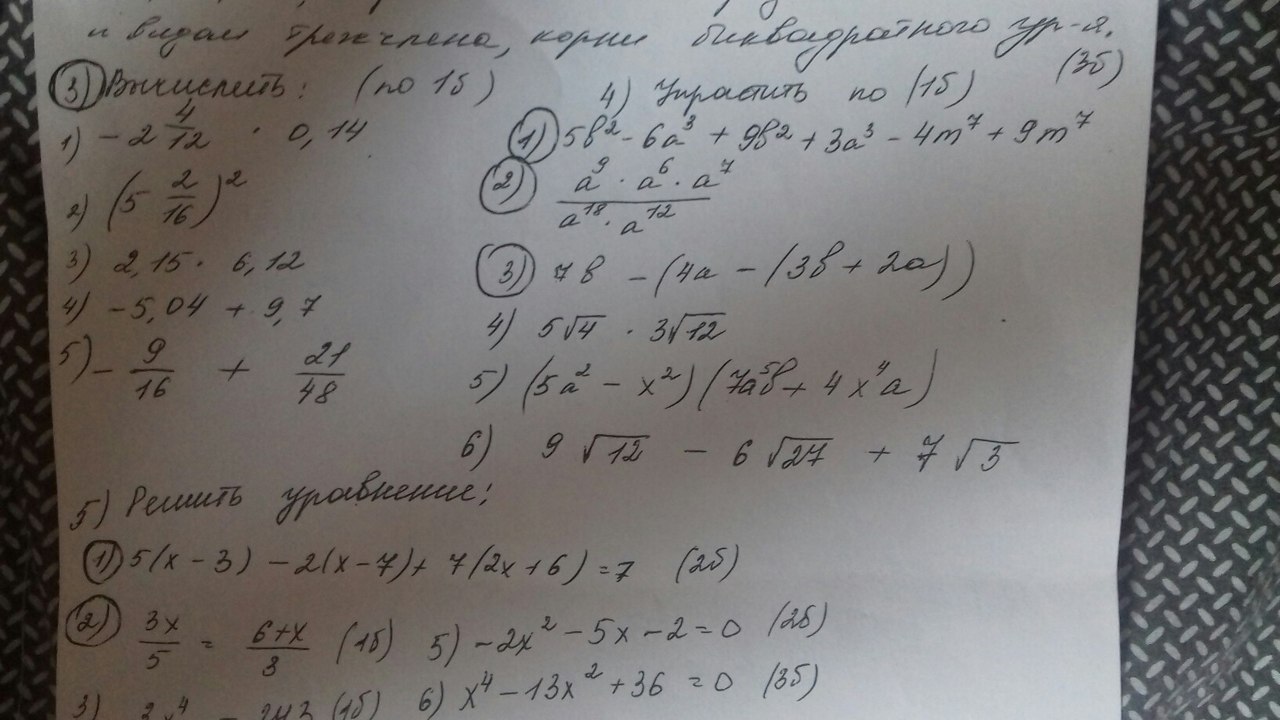 и видам трехчлена, корни биквадратного ур-я.
(3б)
3) Вычислить: (по 1б)
1) -2 4/12 · 0,14
2) (5 2/16)²
3) 2,15 · 6,12
4) -5,04 + 9,7
5) -9/16 + 21/48
4) Упрастить по (1б)
1) 5в² - 6а³ + 9в² + 3а³ - 4m⁷ + 9m⁷
2) а⁹ · а⁶ · а⁷ / а¹⁸ · а¹²
3) 7в - (4а - (3в + 2а))
4) 5√4 · 3√12
5) (5а² - х²)(7а⁵в + 4х⁴а)
6) 9√12 - 6√27 + 7√3
5) Решить уравнение:
1) 5(х - 3) - 2(х - 7) + 7(2х + 6) = 7 (2б)
2) 3х/5 = 6+х/3 (1б)
3) 3х⁴ = 243 (1б)
5) -2х² - 5х - 2 = 0 (2б)
6) х⁴ - 13х² + 36 = 0 (3б)